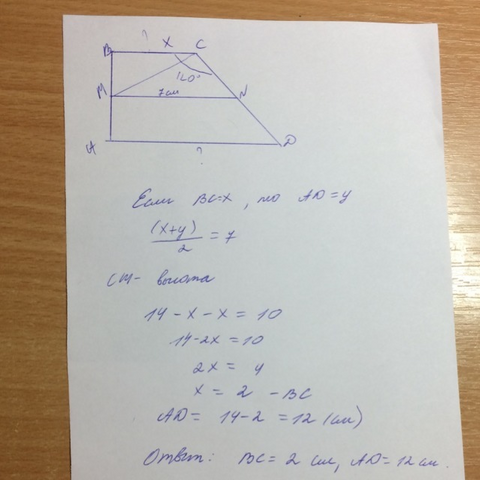 ? X
B C
120°
M 7см N
A ? D
Если BC=X, то AD=y
(x+y)/2 = 7
CM - высота
14 - x - x = 10
14 - 2x = 10
2x = 4
x = 2 - BC
AD = 14 - 2 = 12 (см)
Ответ: BC = 2 см, AD = 12 см.